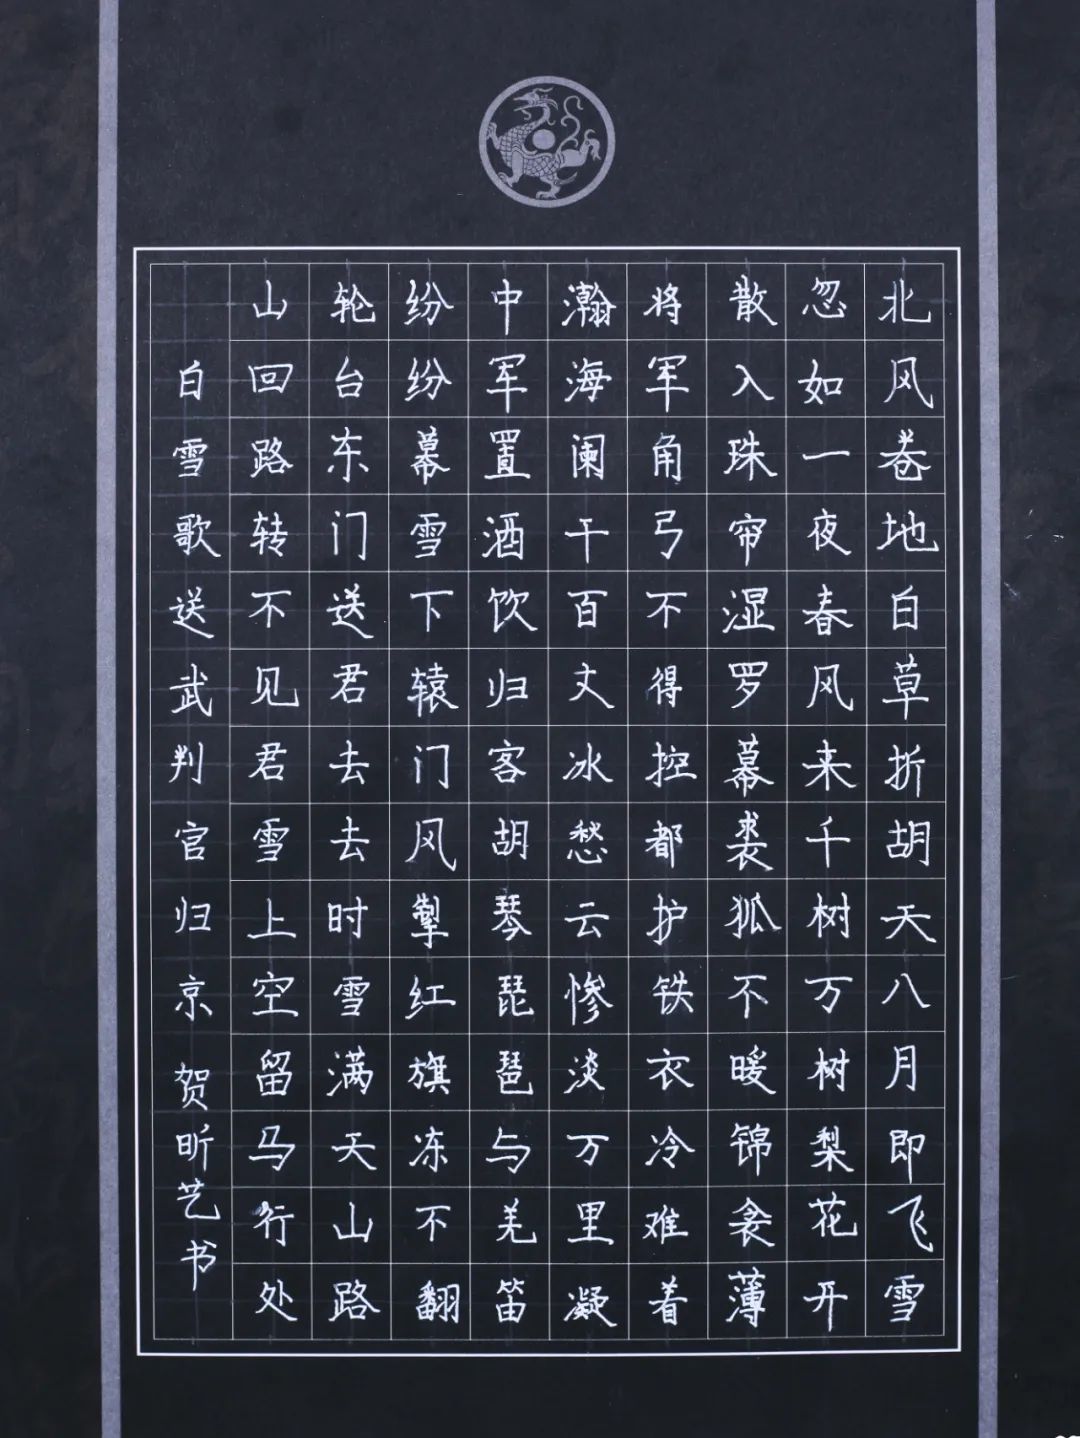 北风卷地白草折胡天八月即飞雪
忽如一夜春风来千树万树梨花开
散入珠帘湿罗幕裘狐不暖锦衾薄
将军角弓不得控都护铁衣冷难着
瀚海阑干百丈冰愁云惨淡万里凝
中军置酒饮归客胡琴琵琶与羌笛
纷纷幕雪下辕门风掣红旗冻不翻
轮台东门送君去去时雪满天山路
山回路转不见君雪上空留马行处
白雪歌送武判官归京 贺昕艺书